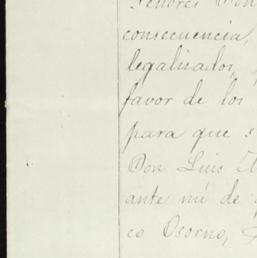 Señores Don
consecuencia,
legalizados,
favor de los
para que s
Don Luis
ante mí de
co Osorno,